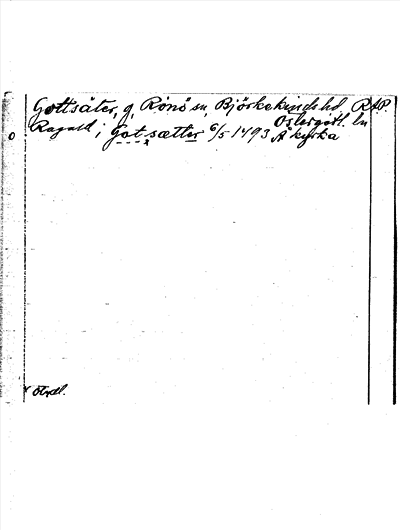 Gottsäter, g, Rönö sn, Björkekinds hd, RAP.
Östergötl. ln
Ragvald i Gotsætter 6/5 1493 Å kyrka
o